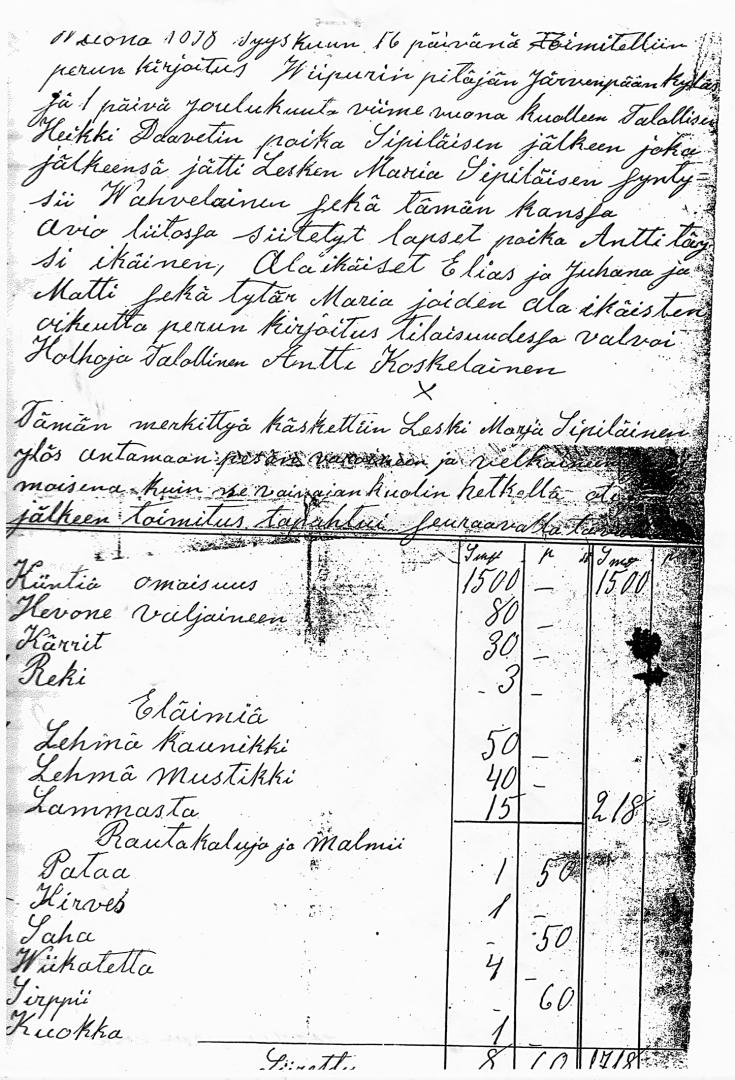 Wuona 1898 Syyskuun 16 päivänä Toimitelliin
perun kirjoitus Wiipurin pitäjän Järvenpään kyläs
jä 1 päivä joulukuuta viime vuona kuolleen Talollisen
Heikki Daavetin poika Sipiläisen jälkeen joka
jälkeensä jätti Lesken Maria Sipiläisen synty=
sii Wahvelainen sekä tämän kanssa
avio liitossa siitetyt lapset poika Antti täy
si ikäinen, Ala ikäiset Elias ja Juhana ja
Matti sekä tytär Maria joiden ala ikäisten
oikeutta perun kirjoitus tilaisuudessa valvoi
Holhoja Talollinen Antti Koskelainen
X
Tämän merkittyä käskettiin Leski Marja Sipiläinen
ylös antamaan pesän varoineen ja velkaineen
moisena kuin ne vainajan kuolin hetkellä oli
jälkeen toimitus tapahtui seuraavalla tavalla
Smk p Smk p
Kiintiä omaisuus 1500 – 1500
Hevone valjaineen 80 –
Kärrit 30 –
Reki 3 –
Eläimiä
Lehmä Kaunikki 50 –
Lehmä Mustikki 40 –
Lammasta 15 218
Rautakaluja ja Malmii
Pataa 1 50
Kirves 1 –
Saha – 50
Wiikatetta 4 –
Sirppii – 60
Kuokka 1
Siirettu 8 60 1718